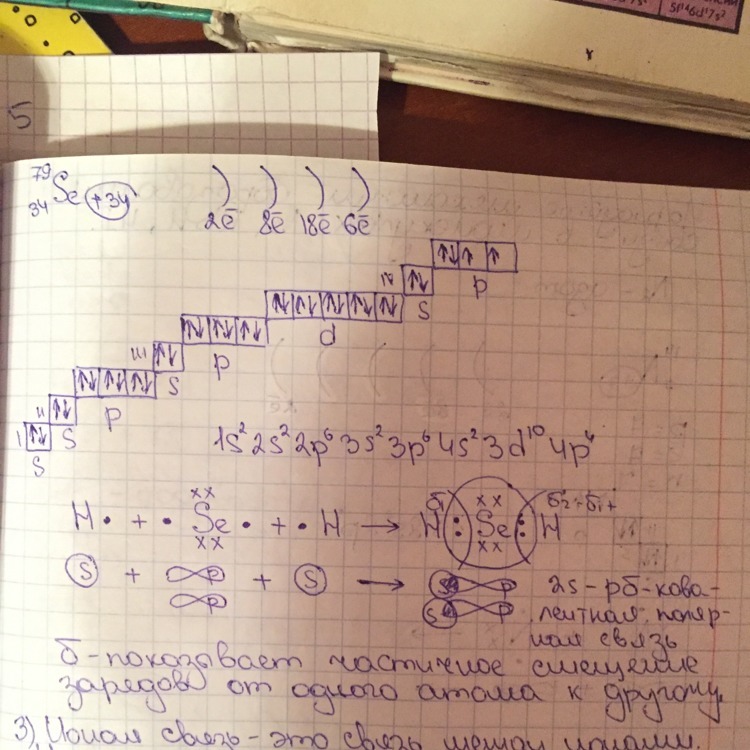 5
5f¹⁴6d¹7s²
⁷⁹₃₄Se +34 ) ) ) )
2ē 8ē 18ē 6ē
IV ↑↓ ↑↓ ↑ ↑
s p
III ↑↓ ↑↓ ↑↓ ↑↓ ↑↓ ↑↓ ↑↓ ↑↓ ↑↓
s p d
II ↑↓ ↑↓ ↑↓ ↑↓
s p
I ↑↓
s
1s² 2s² 2p⁶ 3s² 3p⁶ 4s² 3d¹⁰ 4p⁴
H• + •Se• + •H → H : Se : H
S + p p + S → S p S p 2s-pб-кова-
лентная поляр-
ная связь
б-показывает частичное смещение
зарядов от одного атома к другому.
3) связь - это связь между ионами